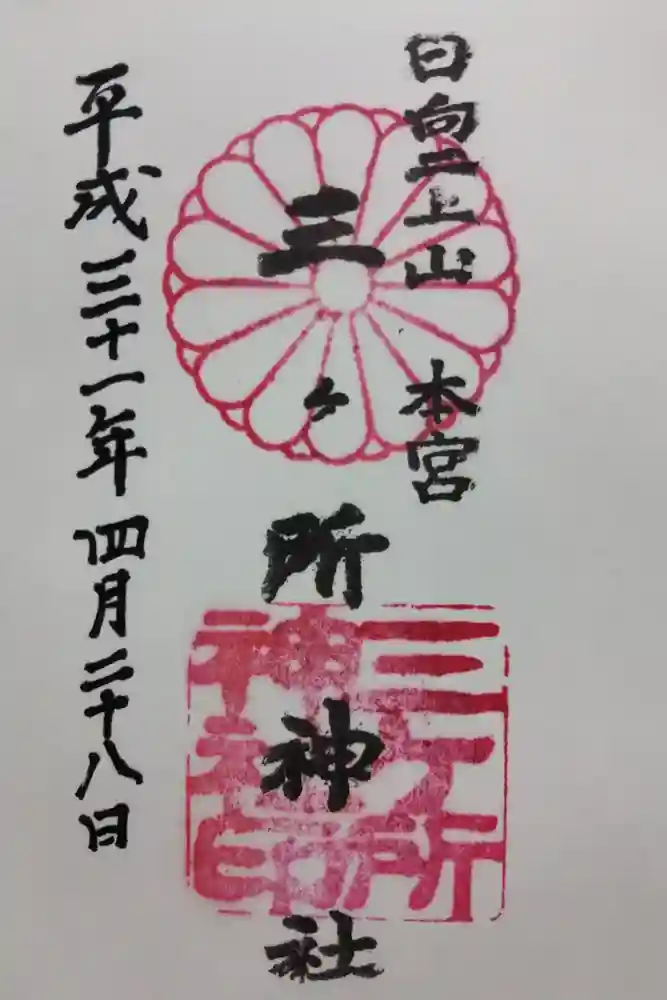 日向二上山 本宮
三ヶ所神社
三ヶ所
神社印
平成三十一年 四月二十八日